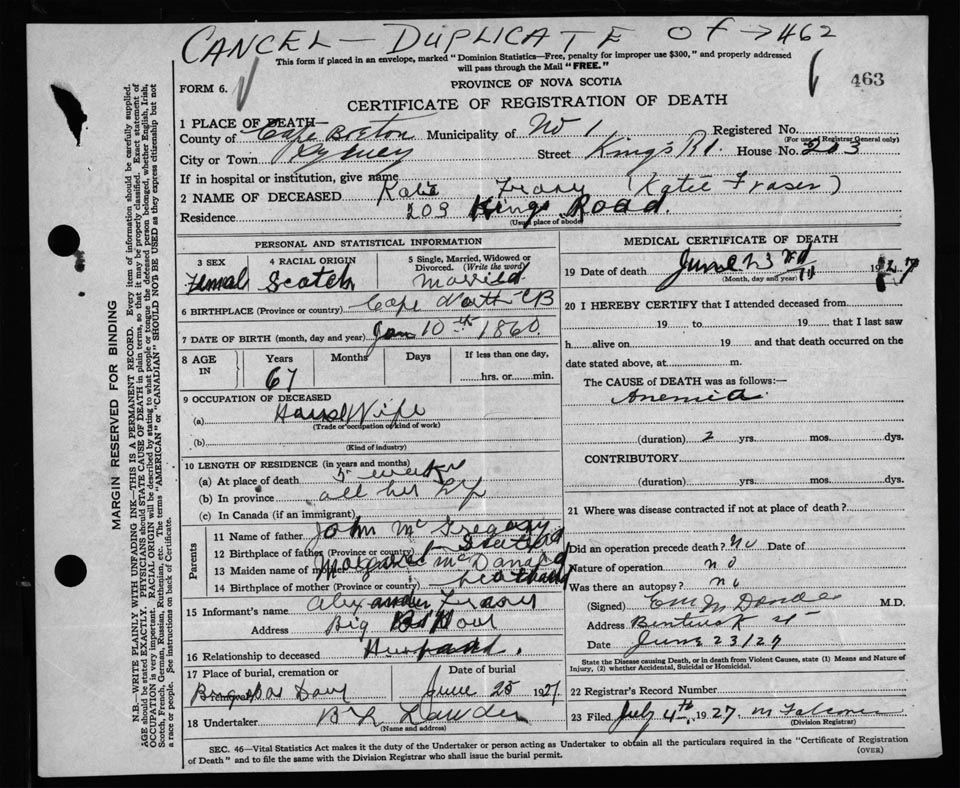 CANCEL — DUPLICATE OF → 462
This form if placed in an envelope, marked "Dominion Statistics—Free, penalty for improper use $300," and properly addressed
will pass through the Mail "FREE."
PROVINCE OF NOVA SCOTIA
FORM 6.
463
CERTIFICATE OF REGISTRATION OF DEATH
1 PLACE OF DEATH—
County of Cape Breton Municipality of No 1 Registered No.
(For use of Registrar General only)
City or Town Sydney Street Kings Rd. House No. 203
If in hospital or institution, give name
2 NAME OF DECEASED Katie (Katie Fraser)
Residence 209 Kings Road.
(Usual place of abode)
PERSONAL AND STATISTICAL INFORMATION
3 SEX 4 RACIAL ORIGIN 5 Single, Married, Widowed or
Divorced. (Write the word)
Femal Scotch Married
6 BIRTHPLACE (Province or country) Cape North CB
7 DATE OF BIRTH (month, day and year) Jan 10th 1860
8 AGE IN Years Months Days If less than one day,
67 hrs. or min.
9 OCCUPATION OF DECEASED
(a) House Wife
(Trade or occupation or kind of work)
(b)
(Kind of industry)
10 LENGTH OF RESIDENCE (in years and months)
(a) At place of death 5 weeks
(b) In province all her
(c) In Canada (if an immigrant)
Parents
11 Name of father John McGregory
12 Birthplace of father (Province or country)
13 Maiden name of mother Margaret McDonald
14 Birthplace of mother (Province or country)
15 Informant's name Alexander
Address Big
16 Relationship to deceased Husband.
17 Place of burial, cremation or removal Date of burial
June 25 1927
18 Undertaker
(Name and address)
MEDICAL CERTIFICATE OF DEATH
19 Date of death June 23rd 1927
(Month, day and year)
20 I HEREBY CERTIFY that I attended deceased from
19 to 19 that I last saw
h alive on 19 and that death occurred on the
date stated above, at m.
The CAUSE OF DEATH was as follows:—
Anemia.
(duration) 2 yrs. mos. dys.
CONTRIBUTORY
(duration) yrs. mos. dys.
21 Where was disease contracted if not at place of death?
Did an operation precede death? no Date of
Nature of operation no
Was there an autopsy? no
(Signed) M.D.
Address
Date June 23/27
State the Disease causing Death, or in death from Violent Causes, state (1) Means and Nature of
Injury, (2) whether Accidental, Suicidal or Homicidal.
22 Registrar's Record Number
23 Filed July 4th, 1927
(Division Registrar)
SEC. 46—Vital Statistics Act makes it the duty of the Undertaker or person acting as Undertaker to obtain all the particulars required in the "Certificate of Registration
of Death" and to file the same with the Division Registrar who shall issue the burial permit.
(OVER)
MARGIN RESERVED FOR BINDING
N.B.—WRITE PLAINLY WITH UNFADING INK—THIS IS A PERMANENT RECORD. Every item of information should be carefully supplied.
AGE should be stated EXACTLY. PHYSICIANS should STATE CAUSE OF DEATH in plain terms, so that it may be properly classified. Exact statement of
OCCUPATION is very important. RACIAL ORIGIN will be described by stating to what people or tongue the deceased person belonged, whether English, Irish,
Scotch, French, German, Russian, Ruthenian, etc. The terms "AMERICAN" or "CANADIAN" SHOULD NOT BE USED as they express citizenship but not
a race or people. See instructions on back of Certificate.